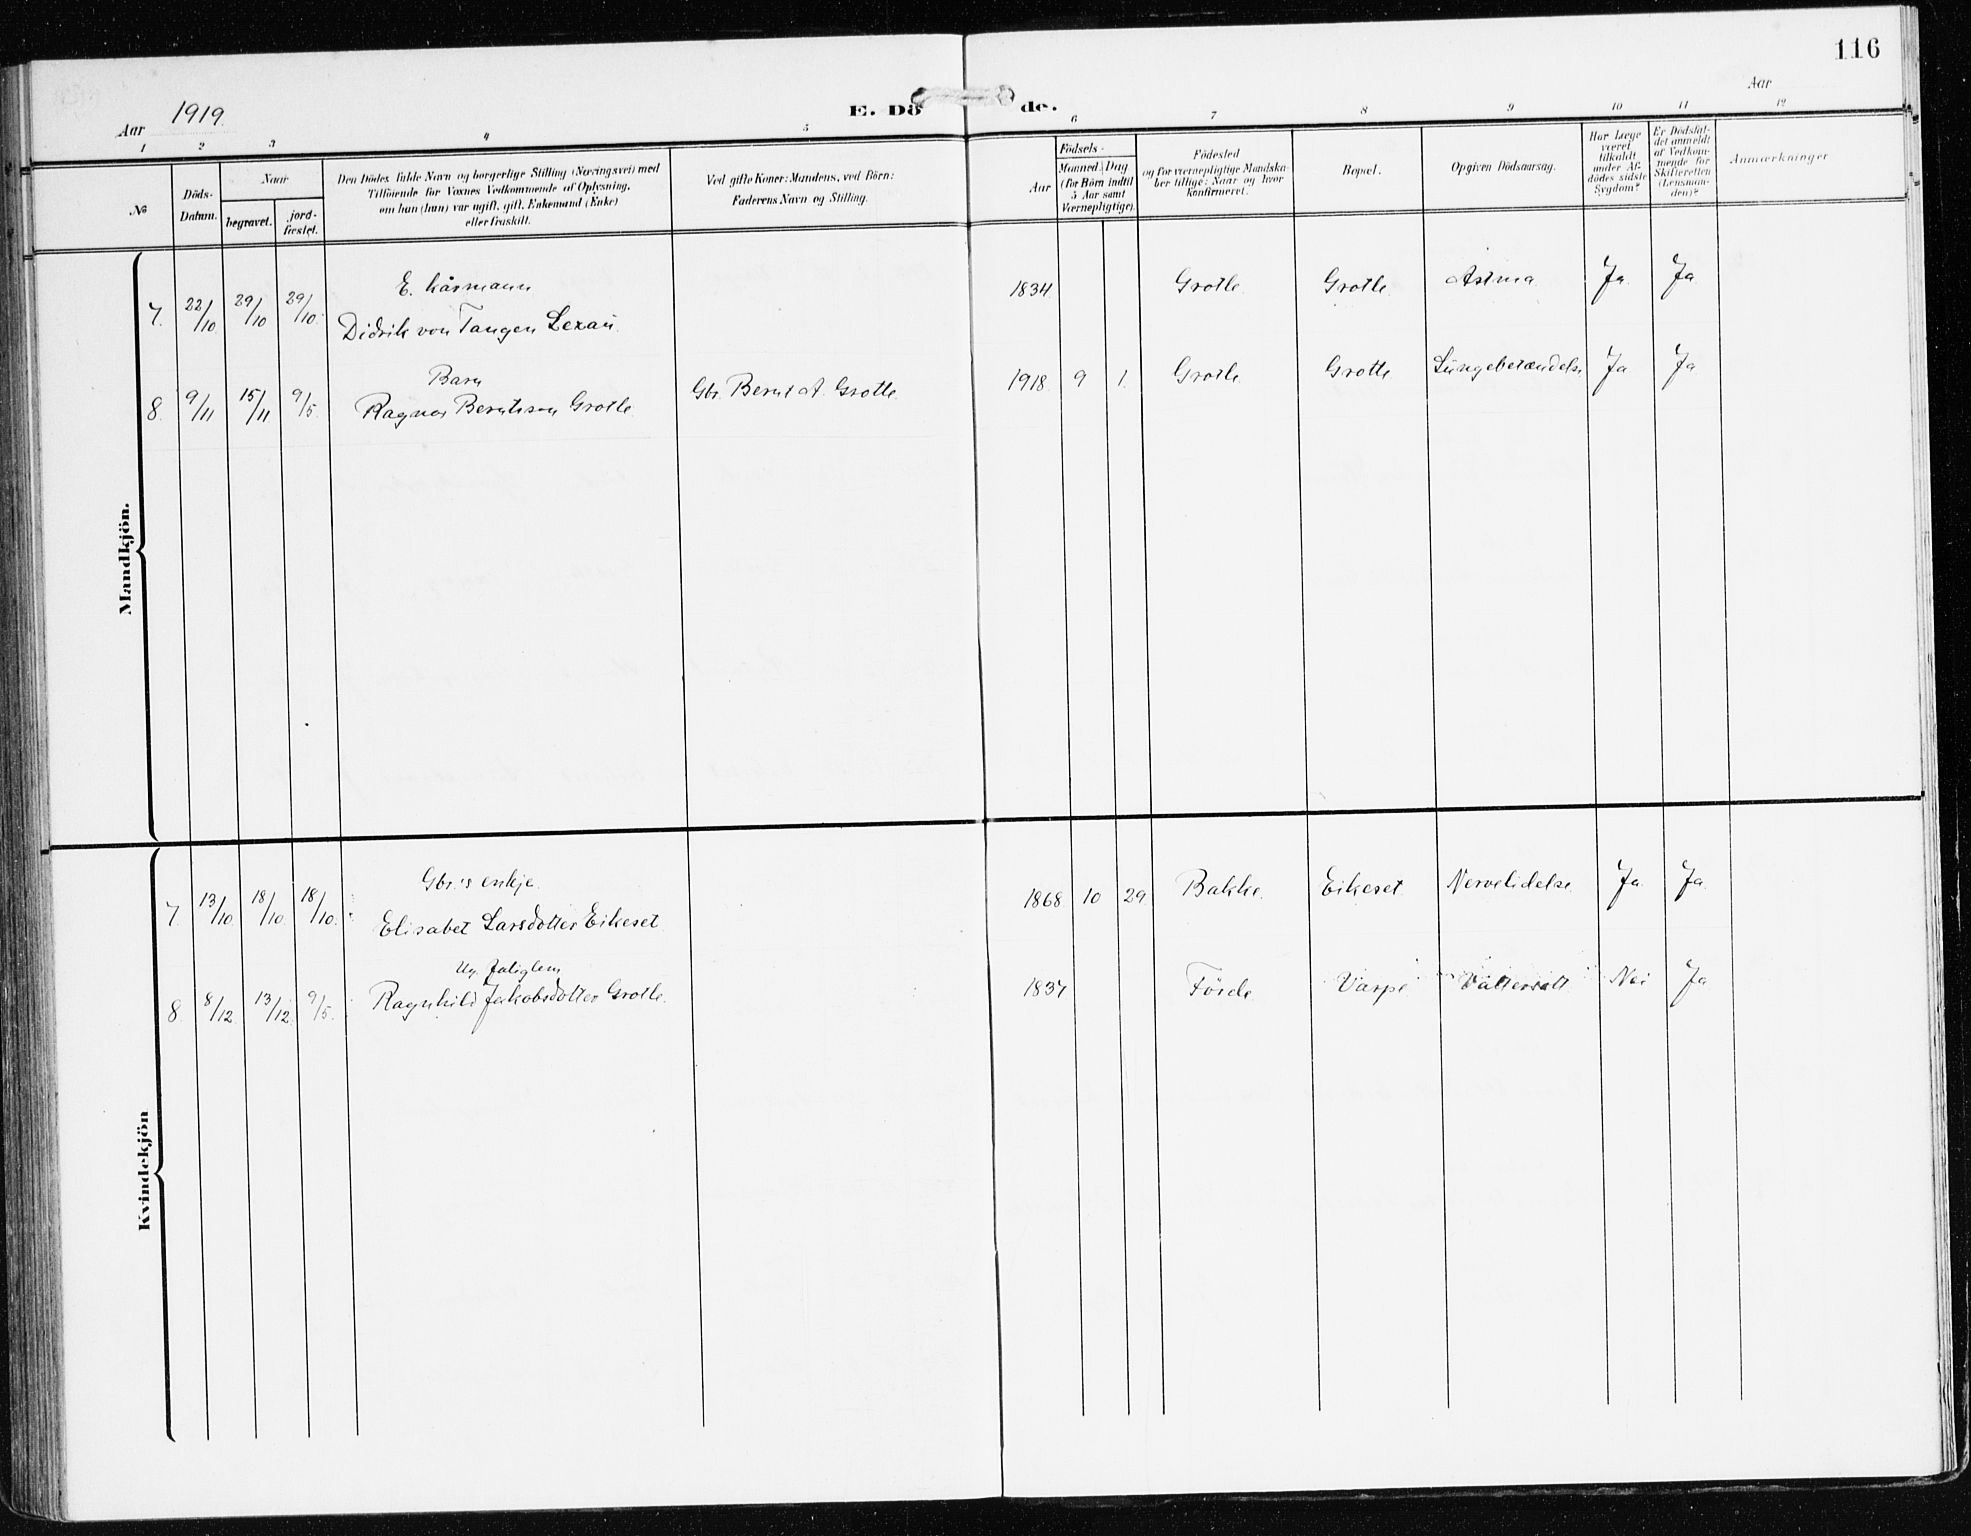 116
Aar 1919.
E. Dö de.
Aar
1 2 3 4 5 6 7 8 9 10 11 12
№
Döds-
Datum.
Naar
begravet.
jord-
fæstet.
Den Dödes fulde Navn og borgerlige Stilling (Næringsvei) med
Tilföiende for Voxnes Vedkommende af Oplysning,
om han (hun) var ugift, gift, Enkemand (Enke)
eller fraskilt.
Ved gifte Koner: Mandens, ved Börn:
Faderens Navn og Stilling.
Aar
Födsels-
Maaned. Dag
(for Börn indtil
5 Aar samt
Værnepligtige).
Födested
og for værnepligtige Mandska-
ber tillige: Naar og hvor
konfirmeret.
Bopæl.
Opgiven Dödsaarsag.
Har Læge
været
tilkaldt
under Af-
dödes sidste
Sygdom?
Er Dödsfal-
det anmeldt
af Vedkom-
mende for
Skifteretten
(Lensman-
den)?
Anmærkninger
Mandkjön.
7. 22/10 29/10 29/10. E. kårmann 1834 Grotle Grotle Astma Ja Ja
Didrik von Tangen Lexau
8. 9/11 15/11 9/5. Barn Gbr. Bernt A. Grotle 1918 9 1. Grotle Grotle Lungebetændelse Ja Ja
Ragnar Berntson Grotle
Kvindekjön
7. 13/10 18/10 18/10. Gbr.'s enkje. 1868 10 29. Bakke. Eikeset Nervelidelse Ja Ja
Elisabet Larsdotter Eikeset
8 8/12 13/12 9/5. Ug. 1837 Förde Varpe Nei Ja
Ragnhild Jakobsdotter Grotle.